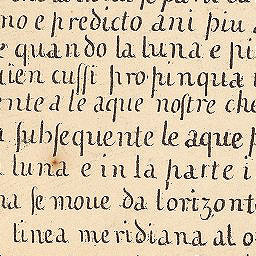 mo e predicto ani piu
e quando la luna e pi
uien cussi propinqua
ente a le aque nostre che
subsequente le aque p
luna e in la parte i
na se moue da lorizont
linea meridiana al o